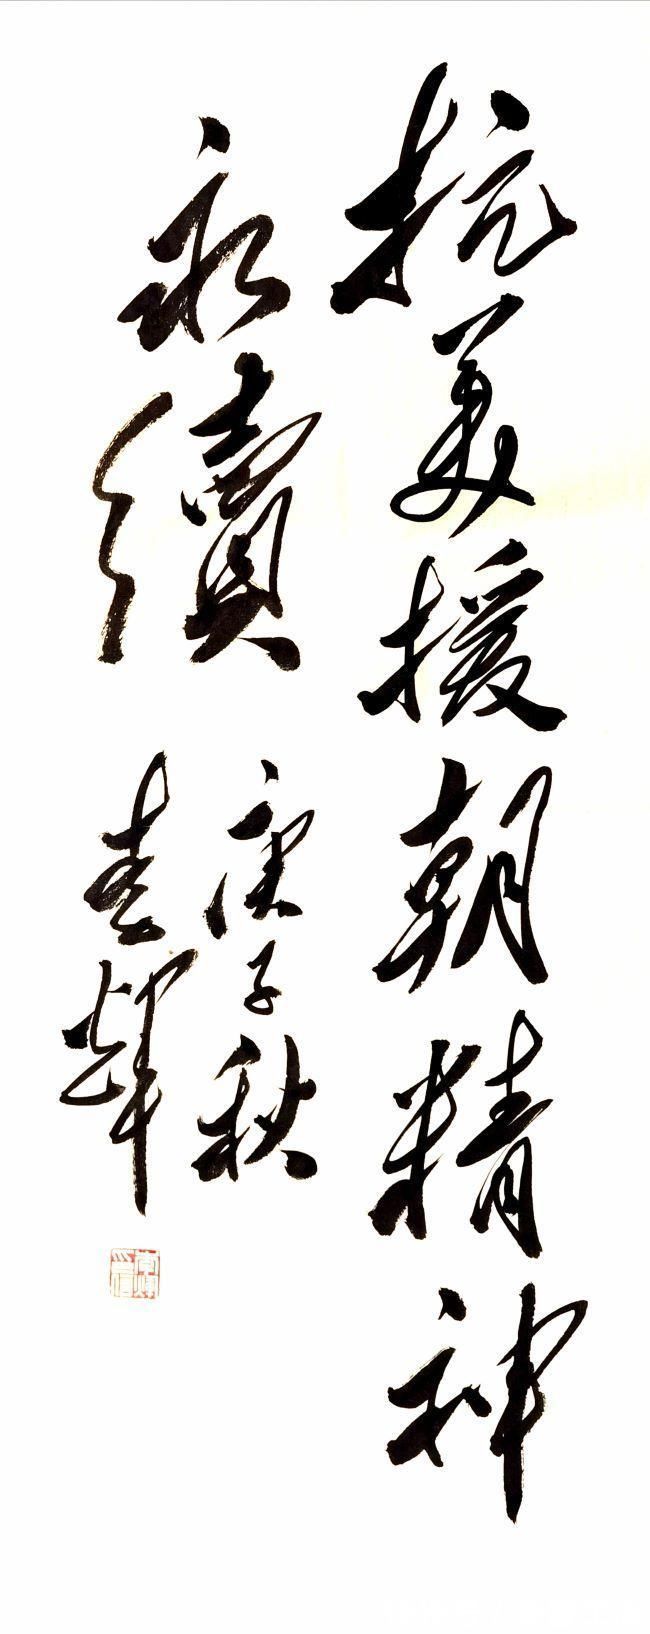 抗美援朝精神
永續
庚子秋